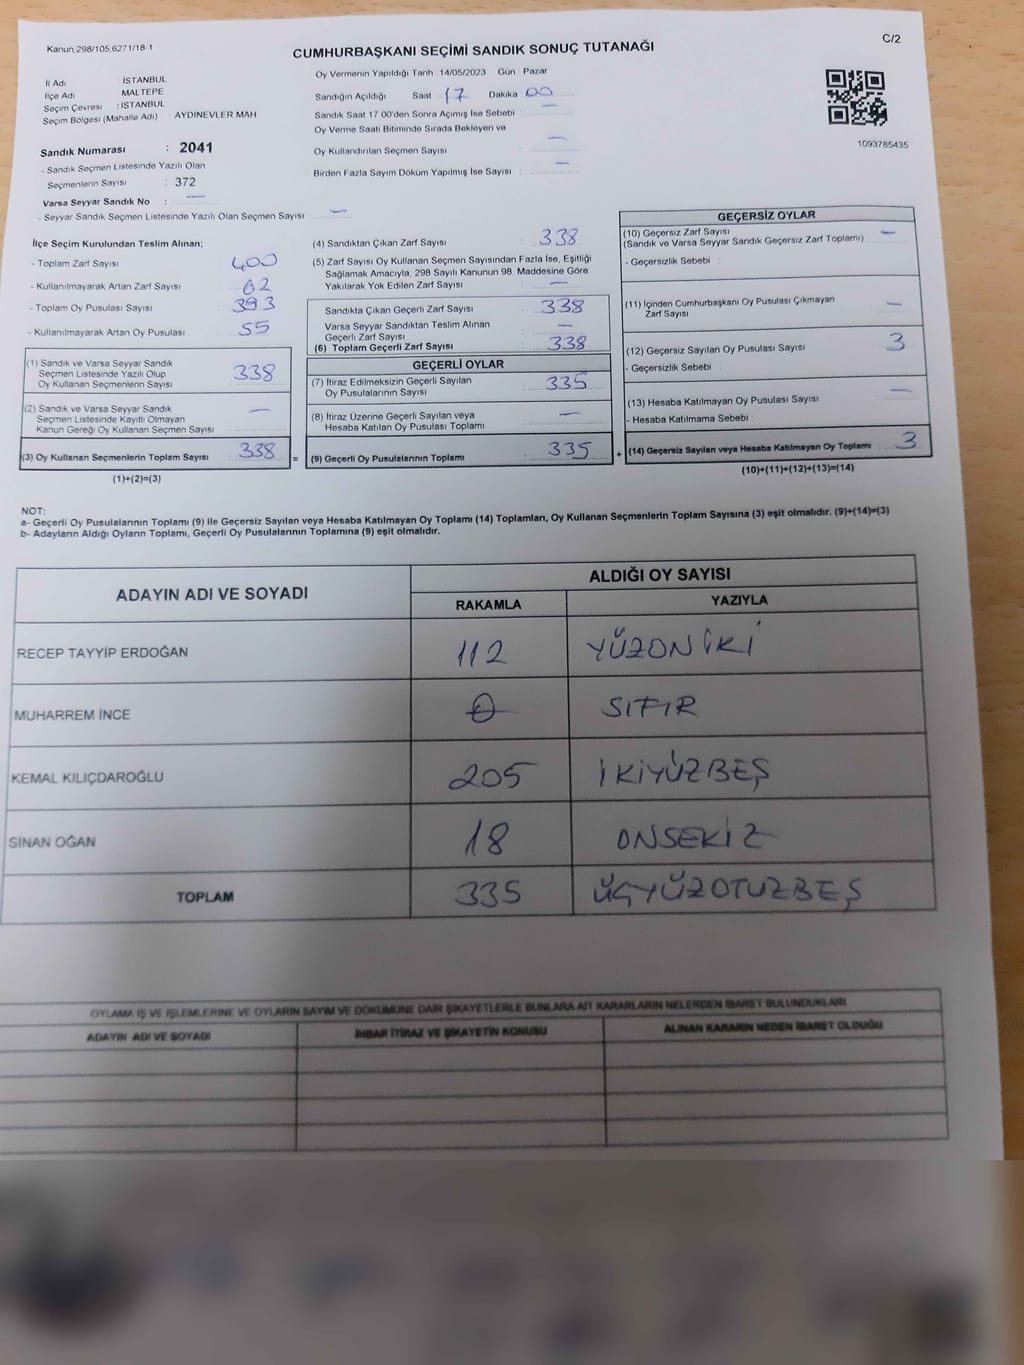 Kanun 298/105,6271/18-1
C/2
CUMHURBAŞKANI SEÇİMİ SANDIK SONUÇ TUTANAĞI
İl Adı İSTANBUL
İlçe Adı MALTEPE
Seçim Çevresi : İSTANBUL
Seçim Bölgesi (Mahalle Adı) AYDINEVLER MAH
Sandık Numarası : 2041
- Sandık Seçmen Listesinde Yazılı Olan
Seçmenlerin Sayısı : 372
Varsa Seyyar Sandık No : —
- Seyyar Sandık Seçmen Listesinde Yazılı Olan Seçmen Sayısı —
Oy Vermenin Yapıldığı Tarih 14/05/2023 Gün Pazar
Sandığın Açıldığı Saat 17 Dakika 00
Sandık Saat 17 00'den Sonra Açımış İse Sebebi : —
Oy Verme Saati Bitiminde Sırada Bekleyen ve
Oy Kullandırılan Seçmen Sayısı : —
Birden Fazla Sayım Döküm Yapılmış İse Sayısı : —
1093785435
İlçe Seçim Kurulundan Teslim Alınan;
- Toplam Zarf Sayısı : 400
- Kullanılmayarak Artan Zarf Sayısı : 62
- Toplam Oy Pusulası Sayısı : 393
- Kullanılmayarak Artan Oy Pusulası : 55
(1) Sandık ve Varsa Seyyar Sandık
Seçmen Listesinde Yazılı Olup
Oy Kullanan Seçmenlerin Sayısı : 338
(2) Sandık ve Varsa Seyyar Sandık
Seçmen Listesinde Kayıtlı Olmayan
Kanun Gereği Oy Kullanan Seçmen Sayısı : —
(3) Oy Kullanan Seçmenlerin Toplam Sayısı : 338
(1)+(2)=(3)
(4) Sandıktan Çıkan Zarf Sayısı : 338
(5) Zarf Sayısı Oy Kullanan Seçmen Sayısından Fazla İse, Eşitliği
Sağlamak Amacıyla, 298 Sayılı Kanunun 98. Maddesine Göre
Yakılarak Yok Edilen Zarf Sayısı : —
Sandıkta Çıkan Geçerli Zarf Sayısı : 338
Varsa Seyyar Sandıktan Teslim Alınan
Geçerli Zarf Sayısı : —
(6) Toplam Geçerli Zarf Sayısı : 338
GEÇERLİ OYLAR
(7) İtiraz Edilmeksizin Geçerli Sayılan
Oy Pusulalarının Sayısı : 335
(8) İtiraz Üzerine Geçerli Sayılan veya
Hesaba Katılan Oy Pusulası Toplamı : —
= (9) Geçerli Oy Pusulalarının Toplamı : 335
GEÇERSİZ OYLAR
(10) Geçersiz Zarf Sayısı : —
(Sandık ve Varsa Seyyar Sandık Geçersiz Zarf Toplamı)
- Geçersizlik Sebebi :
(11) İçinden Cumhurbaşkanı Oy Pusulası Çıkmayan
Zarf Sayısı : —
(12) Geçersiz Sayılan Oy Pusulası Sayısı : 3
- Geçersizlik Sebebi :
(13) Hesaba Katılmayan Oy Pusulası Sayısı : —
- Hesaba Katılmama Sebebi :
+ (14) Geçersiz Sayılan veya Hesaba Katılmayan Oy Toplamı : 3
(10)+(11)+(12)+(13)=(14)
NOT:
a- Geçerli Oy Pusulalarının Toplamı (9) ile Geçersiz Sayılan veya Hesaba Katılmayan Oy Toplamı (14) Toplamları, Oy Kullanan Seçmenlerin Toplam Sayısına (3) eşit olmalıdır. (9)+(14)=(3)
b- Adayların Aldığı Oyların Toplamı, Geçerli Oy Pusulalarının Toplamına (9) eşit olmalıdır.
ADAYIN ADI VE SOYADI
ALDIĞI OY SAYISI
RAKAMLA YAZIYLA
RECEP TAYYİP ERDOĞAN 112 YÜZONİKİ
MUHARREM İNCE 0 SIFIR
KEMAL KILIÇDAROĞLU 205 İKİYÜZBEŞ
SİNAN OĞAN 18 ONSEKİZ
TOPLAM 335 ÜÇYÜZOTUZBEŞ
OYLAMA İŞ VE İŞLEMLERİNE VE OYLARIN SAYIM VE DÖKÜMÜNE DAİR ŞİKAYETLERLE BUNLARA AİT KARARLARIN NELERDEN İBARET BULUNDUKLARI
ADAYIN ADI VE SOYADI İHBAR İTİRAZ VE ŞİKAYETİN KONUSU ALINAN KARARIN NEDEN İBARET OLDUĞU